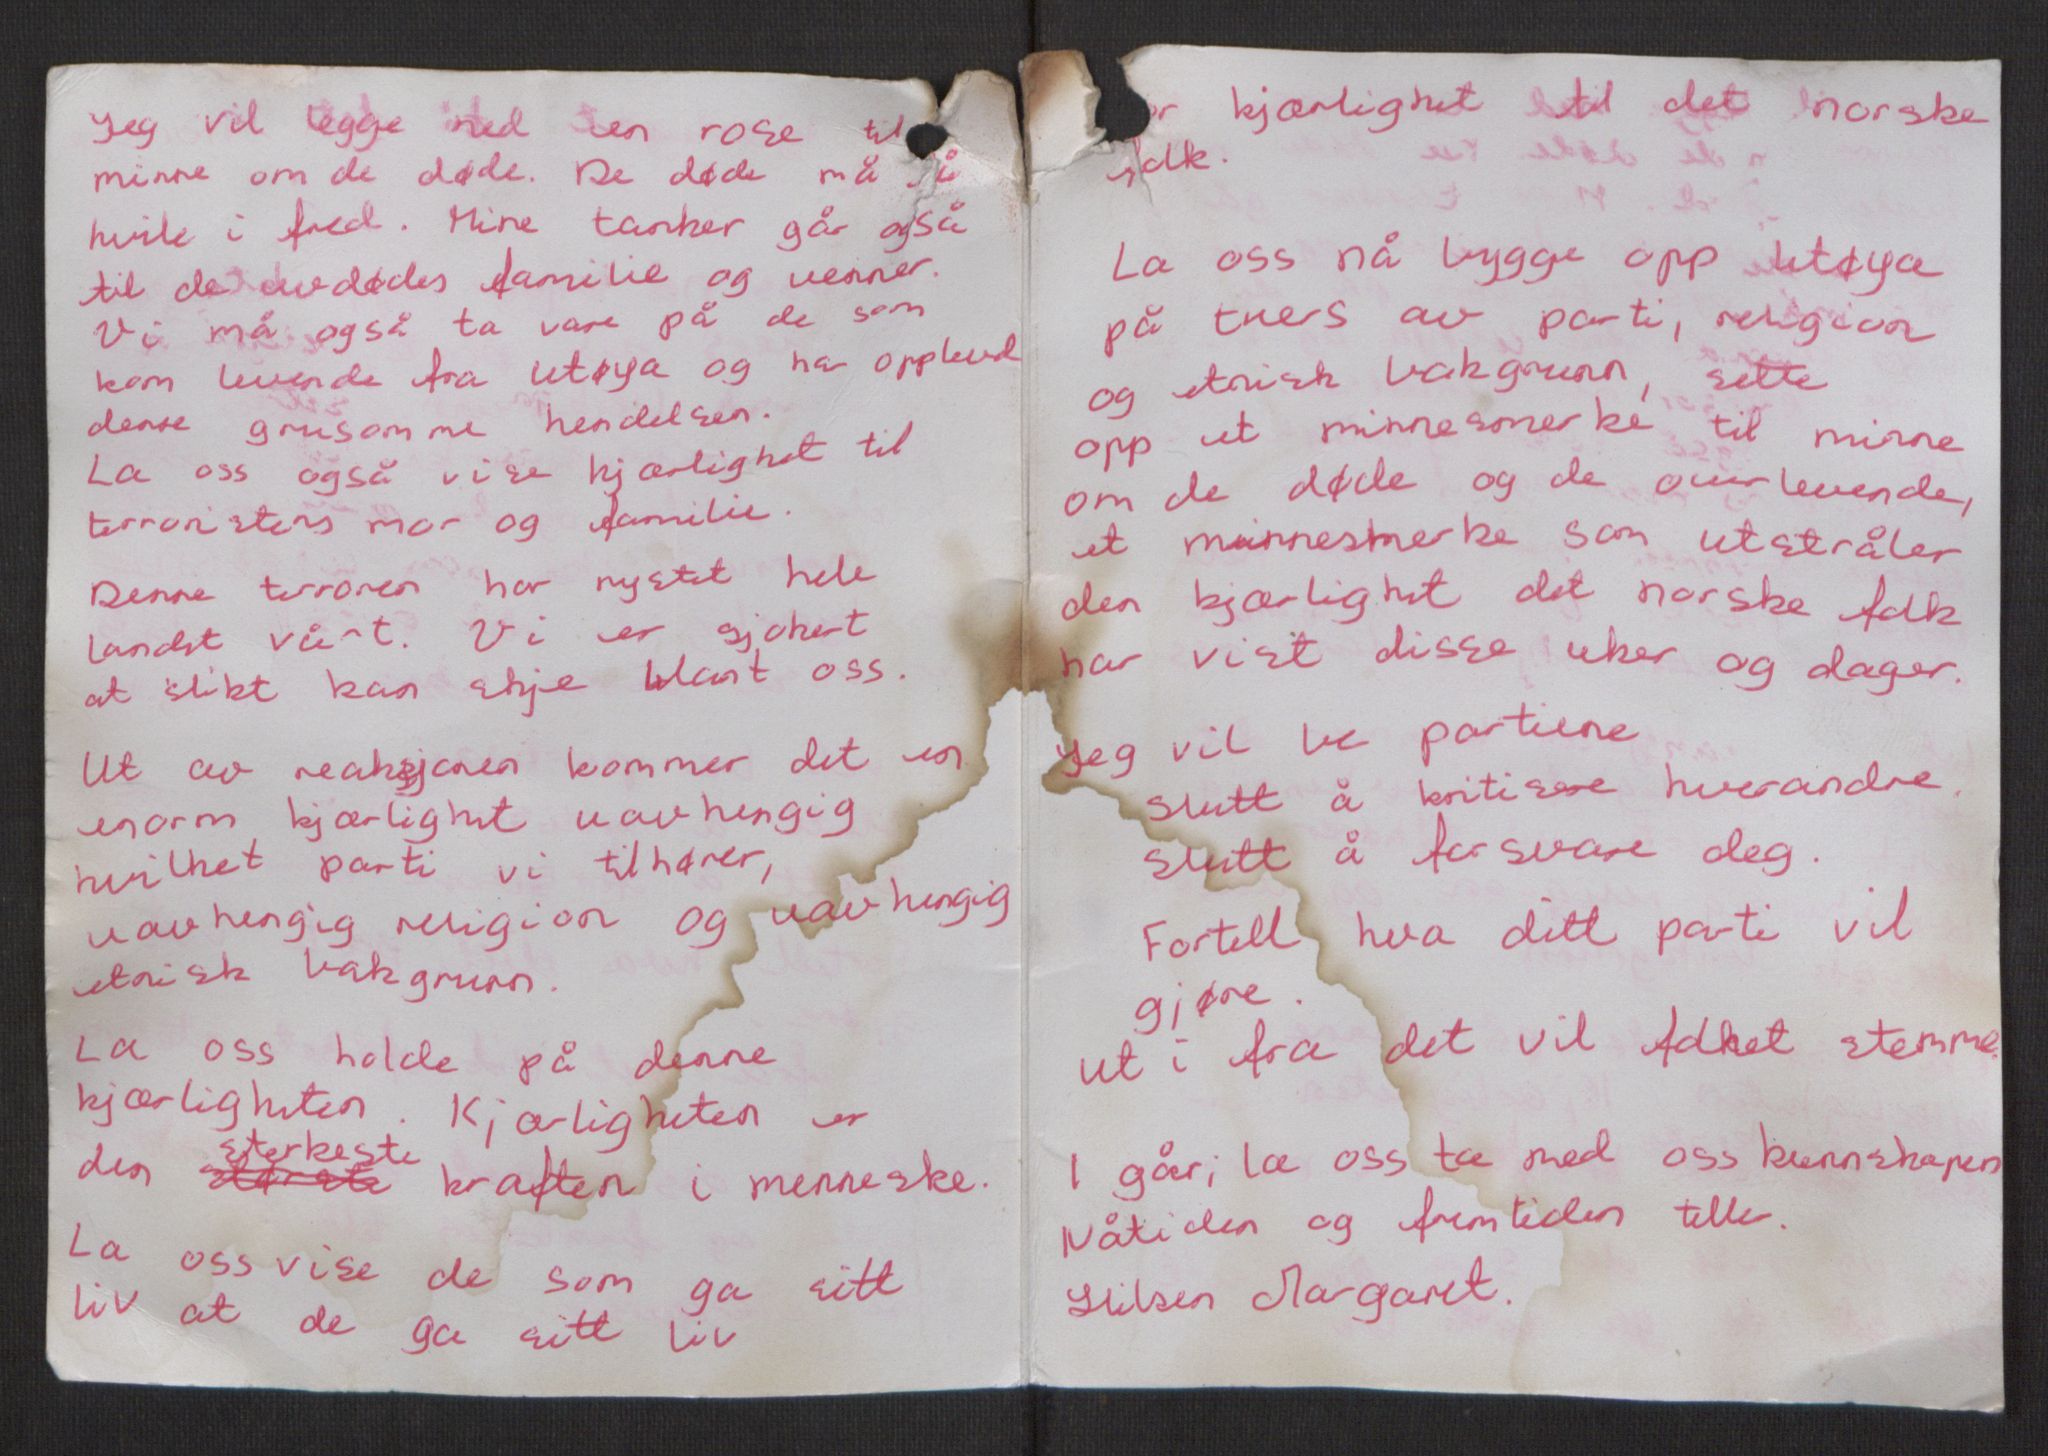 Jeg vil legge ned en rose til
minne om de døde. De døde må få
hvile i fred. Mine tanker går også
til de avdødes familie og venner.
Vi må også ta vare på de som
kom levende fra Utøya og har opplevd
denne grusomme hendelsen.
La oss også vise kjærlighet til
terroristens mor og familie.
Denne terroren har rystet hele
landet vårt. Vi er sjokert
at slikt kan skje blant oss.
Ut av reaksjonen kommer det en
enorm kjærlighet uavhengig
hvilket parti vi tilhører,
uavhengig religion og uavhengig
etnisk bakgrunn.
La oss holde på denne
kjærligheten. Kjærligheten er
den største sterkeste kraften i menneske.
La oss vise de som ga sitt
liv at de ga sitt liv
for kjærlighet til det norske
folk.
La oss nå bygge opp Utøya
på tvers av parti, religion
og etnisk bakgrunn, sette
opp et minnesmerke til minne
om de døde og de overlevende,
et minnesmerke som utstråler
den kjærlighet det norske folk
har vist disse uker og dager.
Jeg vil be partiene
slutt å kritisere hverandre.
slutt å forsvare deg.
Fortell hva ditt parti vil
gjøre.
Ut i fra det vil folket stemme.
I går; la oss ta med oss kunnskapen
Nåtiden og fremtiden teller.
Hilsen Margaret.